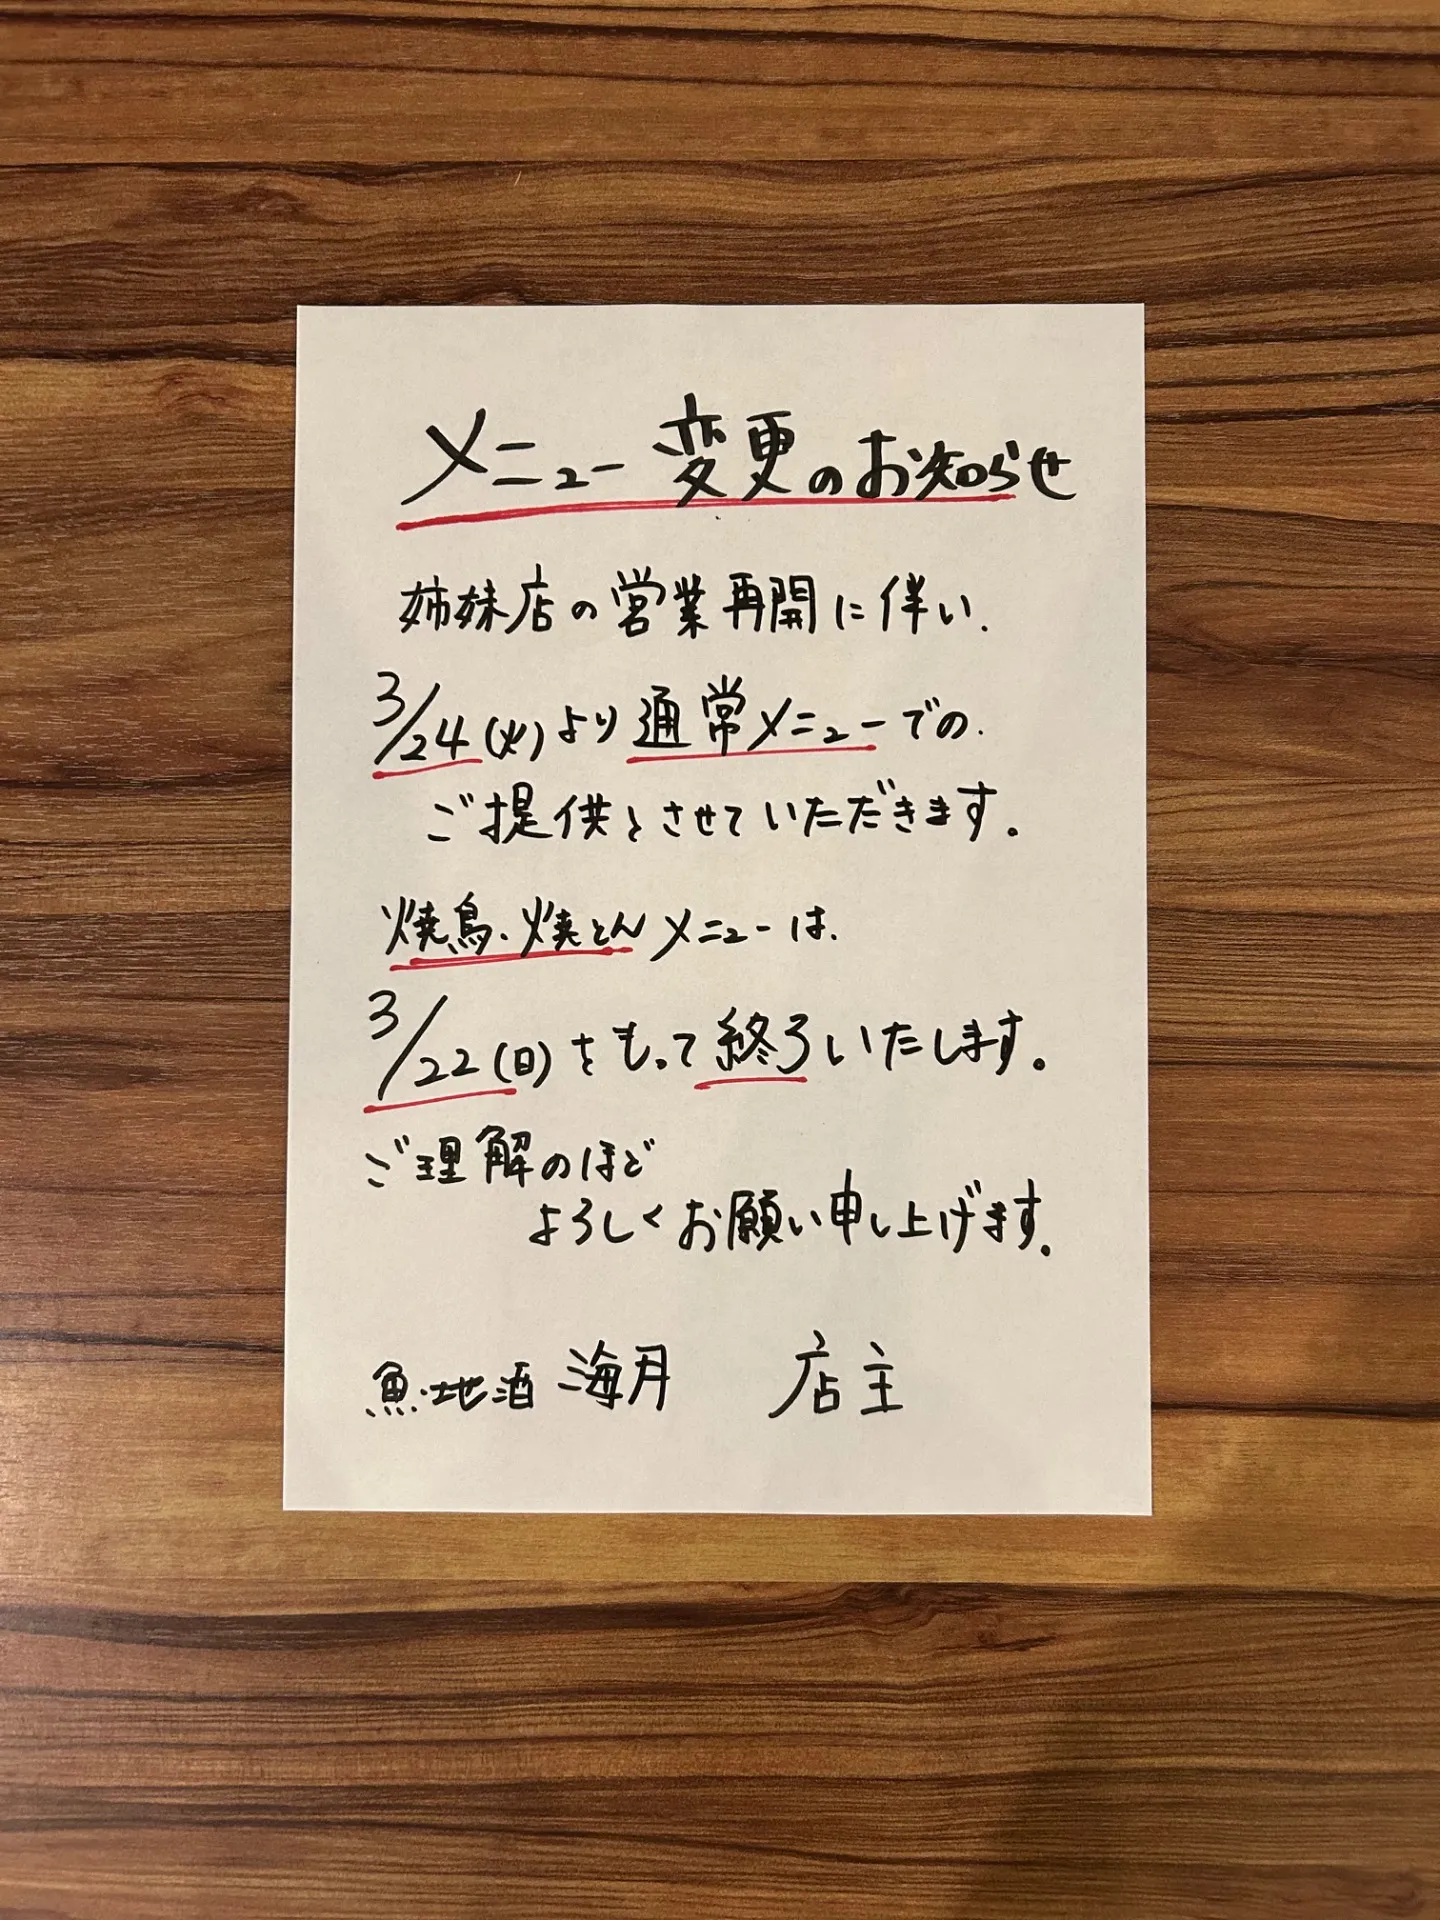 メニュー変更のお知らせ
姉妹店の営業再開に伴い、
3/24(火)より通常メニューでの
ご提供とさせていただきます。
焼鳥・焼とんメニューは、
3/22(日)をもって終了いたします。
ご理解のほど
よろしくお願い申し上げます。
魚・地酒 海月 店主